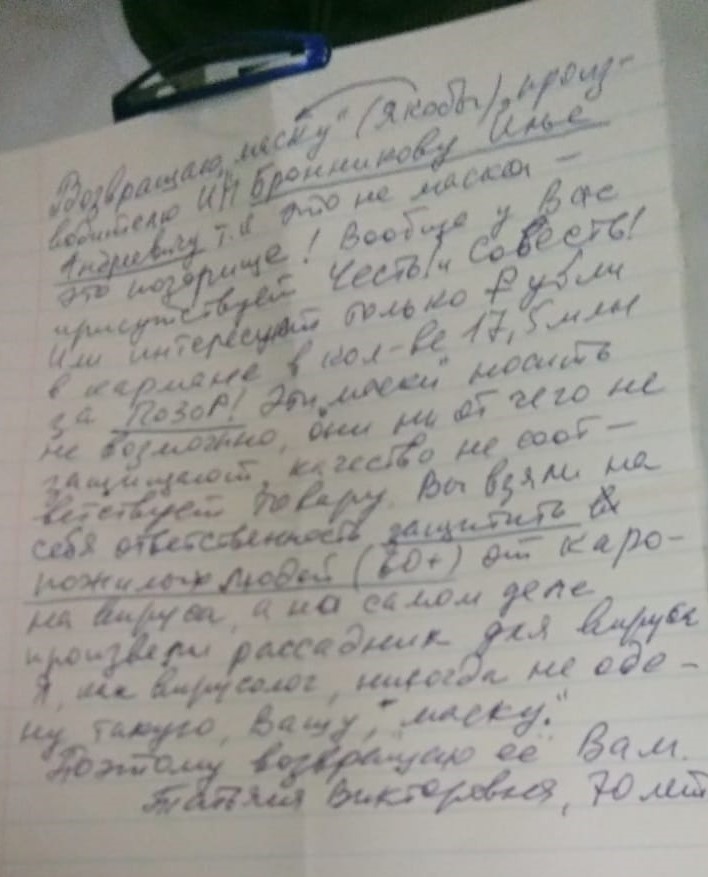 Возвращаю „маску" (якобы) произ-
водителю ИП Бронникову Илье
Андреевичу т.к это не маска –
это позорище! Вообще у Вас
присутствует Честь! и Совесть!
Или интересует только Рубли
в кармане в кол-ве 17,5 млн
за Позор! Эти „маски" носить
не возможно, они ни от чего не
защищают, качество не соот–
ветствует товару. Вы взяли на
себя ответственность защитить
пожилых людей (60+) от каро–
на вируса, а на самом деле
произвели рассадник для вируса
Я, как вирусолог, никогда не оде–
ну такую, Вашу, „маску".
Поэтому возвращаю её Вам.
Татьяна Викторовна, 70 лет